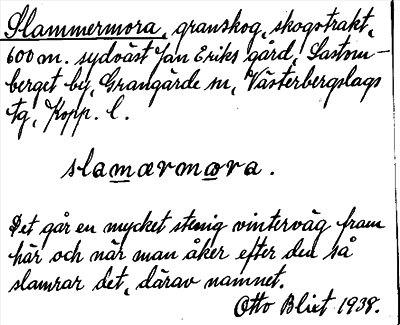 Slammermora, granskog, skogstrakt,
600 m. sydväst Jan Eriks gård, Lastom-
berget by, Grangärde sn, Västerbergslags
tg, Kopp. l.
slamærmora.
Det går en mycket stenig vinterväg fram
här och när man åker efter den så
slamrar det, därav namnet.
Otto Blixt 1938.